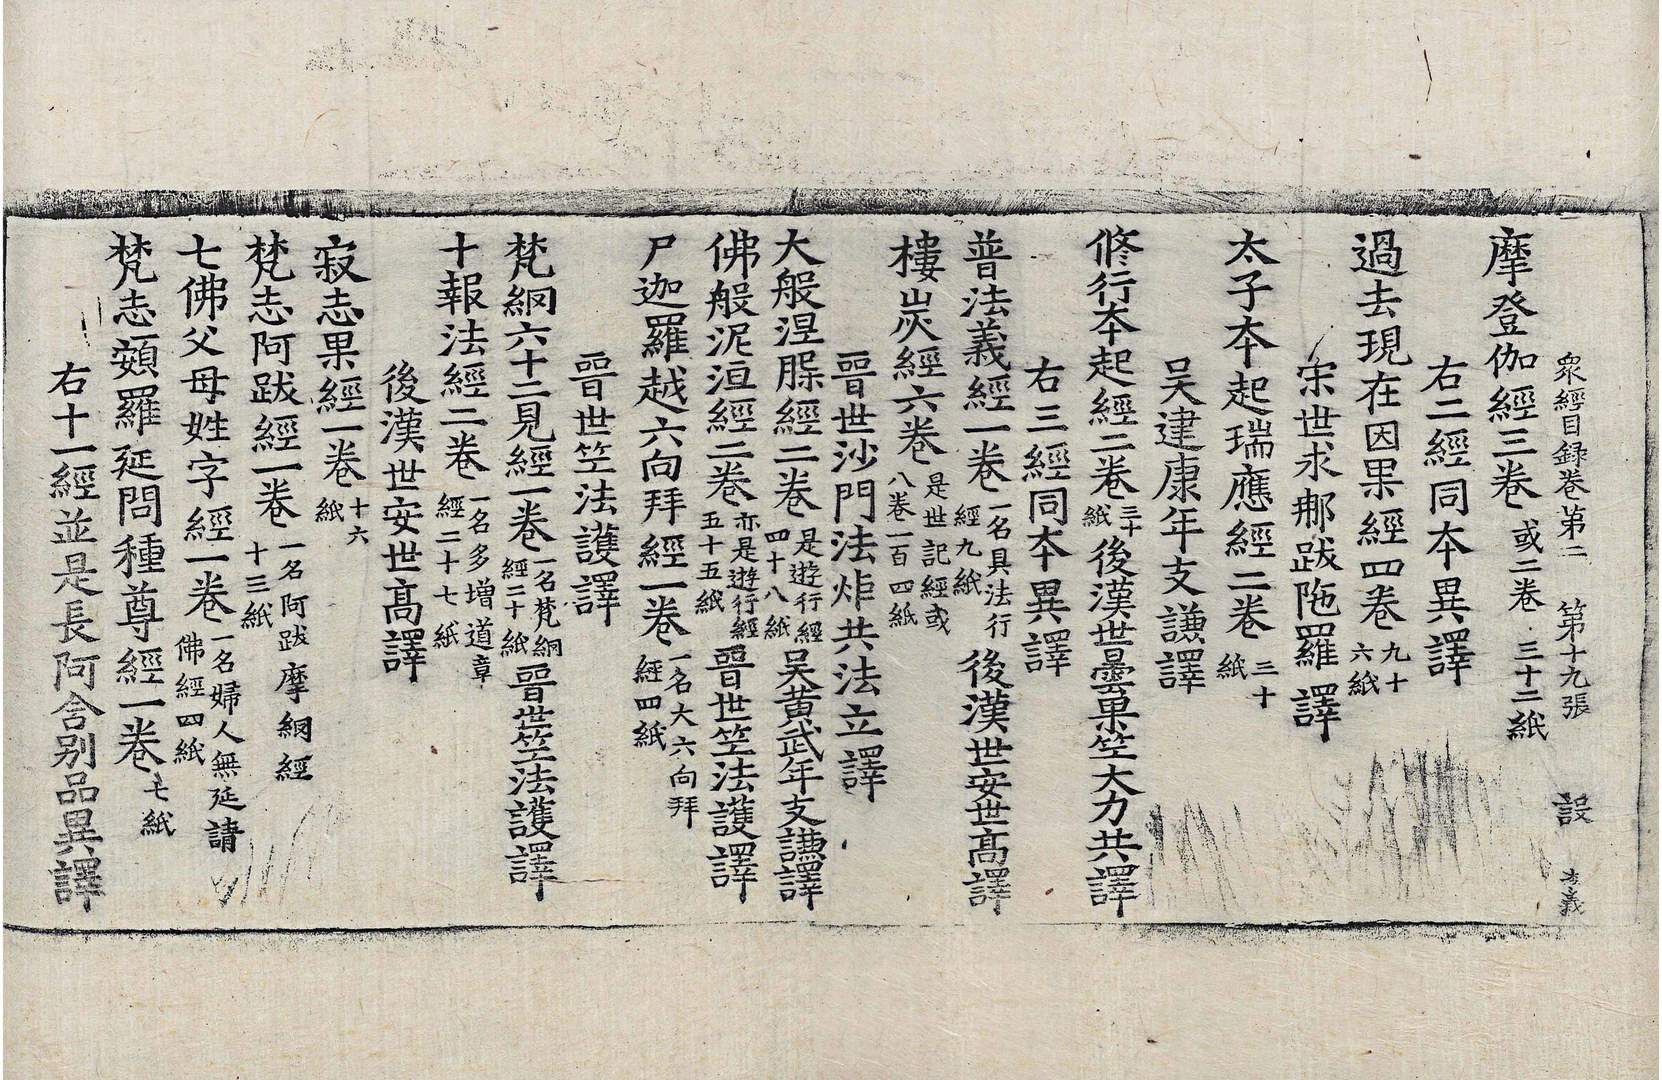 衆經目録卷第二　第十九張　設　李義
摩登伽經三卷 或二卷 三十二紙
右二經同本異譯
過去現在因果經四卷 九十六紙
宋世求那跋陁羅譯
太子本起瑞應經二卷 三十紙
吴建康年支謙譯
修行本起經二卷 三十紙 後漢世曇果竺大力共譯
右三經同本異譯
普法義經一卷 一名具法行經九紙 後漢世安世高譯
樓炭經六卷 是世記經或八卷一百四紙
晋世沙門法炬共法立譯
大般涅脲經二卷 是遊行經四十八紙 吴黄武年支謙譯
佛般泥洹經二卷 亦是遊行經五十五紙 晋世竺法護譯
尸迦羅越六向拜經一卷 一名大六向拜經四紙
晋世竺法護譯
梵網六十二見經一卷 一名梵網經二十紙 晋世竺法護譯
十報法經二卷 一名多增道章經二十七紙
後漢世安世高譯
寂志果經一卷 十六紙
梵志阿跋經一卷 一名阿跋摩網經十三紙
七佛父母姓字經一卷 一名婦人無延請佛經四紙
梵志頞羅延問種尊經一卷 七紙
右十一經並是長阿含别品異譯